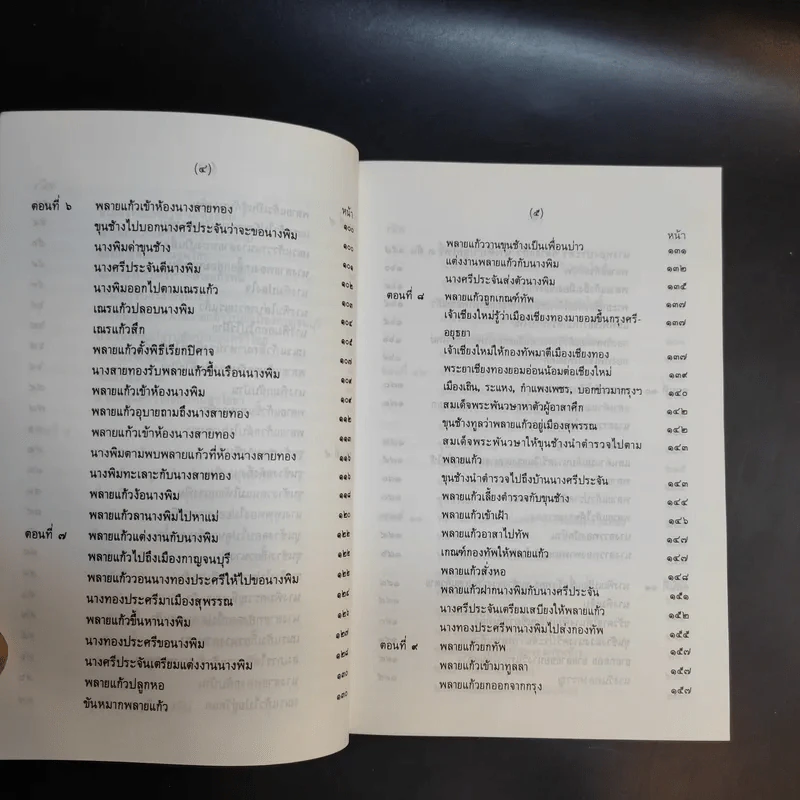 (๔)
หน้า
ตอนที่ ๖ พลายแก้วเข้าห้องนางสายทอง ๑๐๐
ขุนช้างไปบอกนางศรีประจันว่าจะขอนางพิม ๑๐๐
นางพิมด่าขุนช้าง ๑๐๑
นางศรีประจันตีนางพิม ๑๐๑
นางพิมออกไปตามเณรแก้ว ๑๐๒
เณรแก้วปลอบนางพิม ๑๐๔
เณรแก้วสึก ๑๐๕
พลายแก้วตั้งพิธีเรียกปีศาจ ๑๐๗
นางสายทองรับพลายแก้วขึ้นเรือนนางพิม ๑๐๙
พลายแก้วเข้าห้องนางพิม ๑๐๙
พลายแก้วอุบายถามถึงนางสายทอง ๑๑๒
พลายแก้วเข้าห้องนางสายทอง ๑๑๓
นางพิมตามพบพลายแก้วที่ห้องนางสายทอง ๑๑๖
นางพิมทะเลาะกับนางสายทอง ๑๑๖
พลายแก้วง้อนางพิม ๑๑๘
พลายแก้วลานางพิมไปหาแม่ ๑๒๐
ตอนที่ ๗ พลายแก้วแต่งงานกับนางพิม ๑๒๒
พลายแก้วไปถึงเมืองกาญจนบุรี ๑๒๒
พลายแก้ววอนนางทองประศรีให้ไปขอนางพิม ๑๒๒
นางทองประศรีมาเมืองสุพรรณ ๑๒๔
พลายแก้วขึ้นหานางพิม ๑๒๖
นางทองประศรีขอนางพิม ๑๒๗
นางศรีประจันเตรียมแต่งงานนางพิม ๑๒๘
พลายแก้วปลูกหอ ๑๓๐
ขันหมากพลายแก้ว ๑๓๐
(๕)
หน้า
พลายแก้ววานขุนช้างเป็นเพื่อนบ่าว ๑๓๑
แต่งงานพลายแก้วกับนางพิม ๑๓๒
นางศรีประจันส่งตัวนางพิม ๑๓๕
ตอนที่ ๘ พลายแก้วถูกเกณฑ์ทัพ ๑๓๗
เจ้าเชียงใหม่รู้ว่าเมืองเชียงทองมายอมขึ้นกรุงศรี- ๑๓๗
อยุธยา
เจ้าเชียงใหม่ให้กองทัพมาตีเมืองเชียงทอง ๑๓๗
พระยาเชียงทองยอมอ่อนน้อมต่อเชียงใหม่ ๑๓๙
เมืองเถิน, ระแหง, กำแพงเพชร, บอกข่าวมากรุงฯ ๑๔๐
สมเด็จพระพันวษาหาตัวผู้อาสาศึก ๑๔๒
ขุนช้างทูลว่าพลายแก้วอยู่เมืองสุพรรณ ๑๔๒
สมเด็จพระพันวษาให้ขุนช้างนำตำรวจไปตาม ๑๔๓
พลายแก้ว
ขุนช้างนำตำรวจไปถึงบ้านนางศรีประจัน ๑๔๓
พลายแก้วเลี้ยงตำรวจกับขุนช้าง ๑๔๔
พลายแก้วเข้าเฝ้า ๑๔๖
พลายแก้วอาสาไปทัพ ๑๔๗
เกณฑ์กองทัพให้พลายแก้ว ๑๔๗
พลายแก้วสั่งหอ ๑๔๘
พลายแก้วฝากนางพิมกับนางศรีประจัน ๑๕๑
นางศรีประจันเตรียมเสบียงให้พลายแก้ว ๑๕๒
นางทองประศรีพานางพิมไปส่งกองทัพ ๑๕๕
ตอนที่ ๙ พลายแก้วยกทัพ ๑๕๗
พลายแก้วเข้ามาทูลลา ๑๕๗
พลายแก้วยกออกจากกรุง ๑๕๗